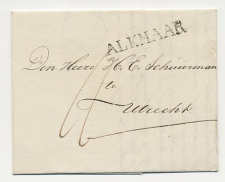 ALKMAAR
Den Heere H. E. Schuurman
te
Utrecht